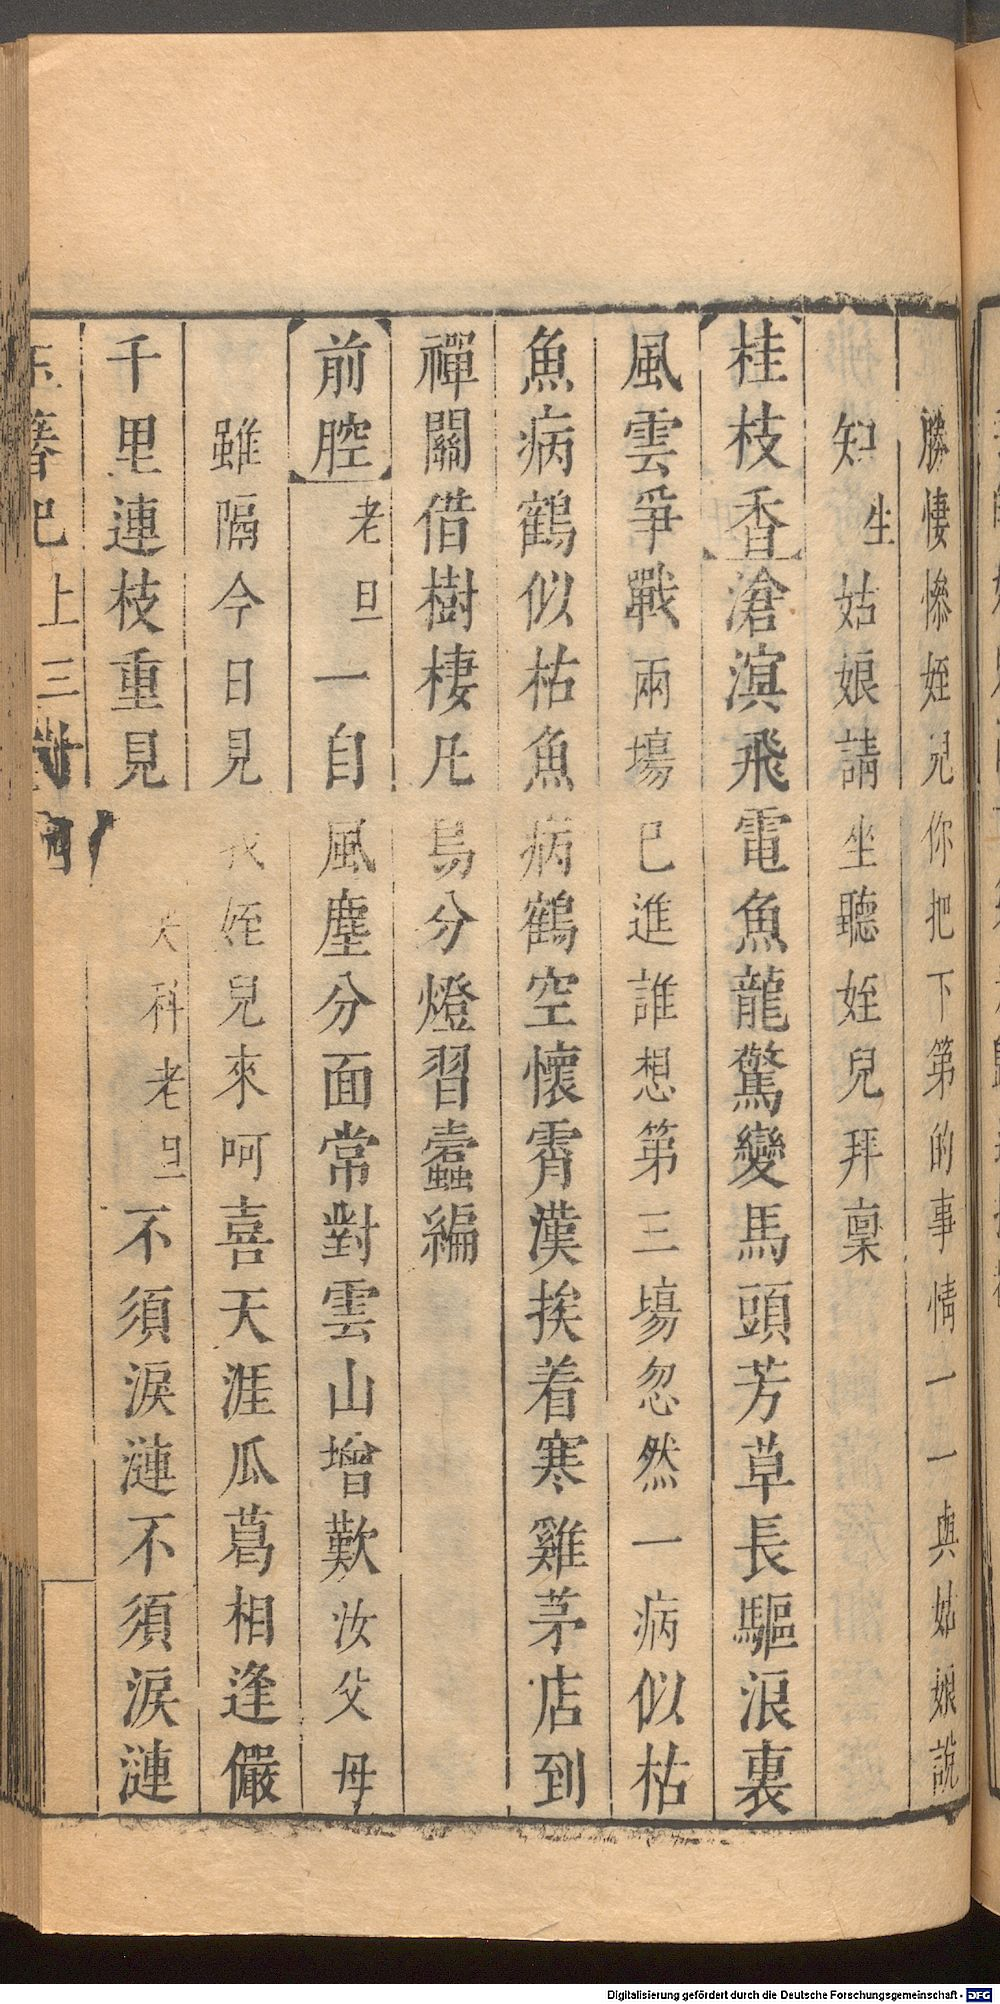 勝悽慘姪兒你把下第的事情一一與姑娘說
知生姑娘請坐聽姪兒拜稟
桂枝香滄溟飛電魚龍驚變馬頭芳草長驅浪裏
風雲爭戰兩塲已進誰想第三塲忽然一病似枯
魚病鶴似枯魚病鶴空懷霄漢挨着寒雞茅店到
禪關借樹棲凡鳥分燈習蠹編
前腔老旦一自風塵分面常對雲山增歎汝父母
雖隔今日見我姪兒來呵喜天涯瓜葛相逢儼
千里連枝重見科老旦不須淚漣不須淚漣
玉簪記上三
Digitalisierung gefördert durch die Deutsche Forschungsgemeinschaft - DFG